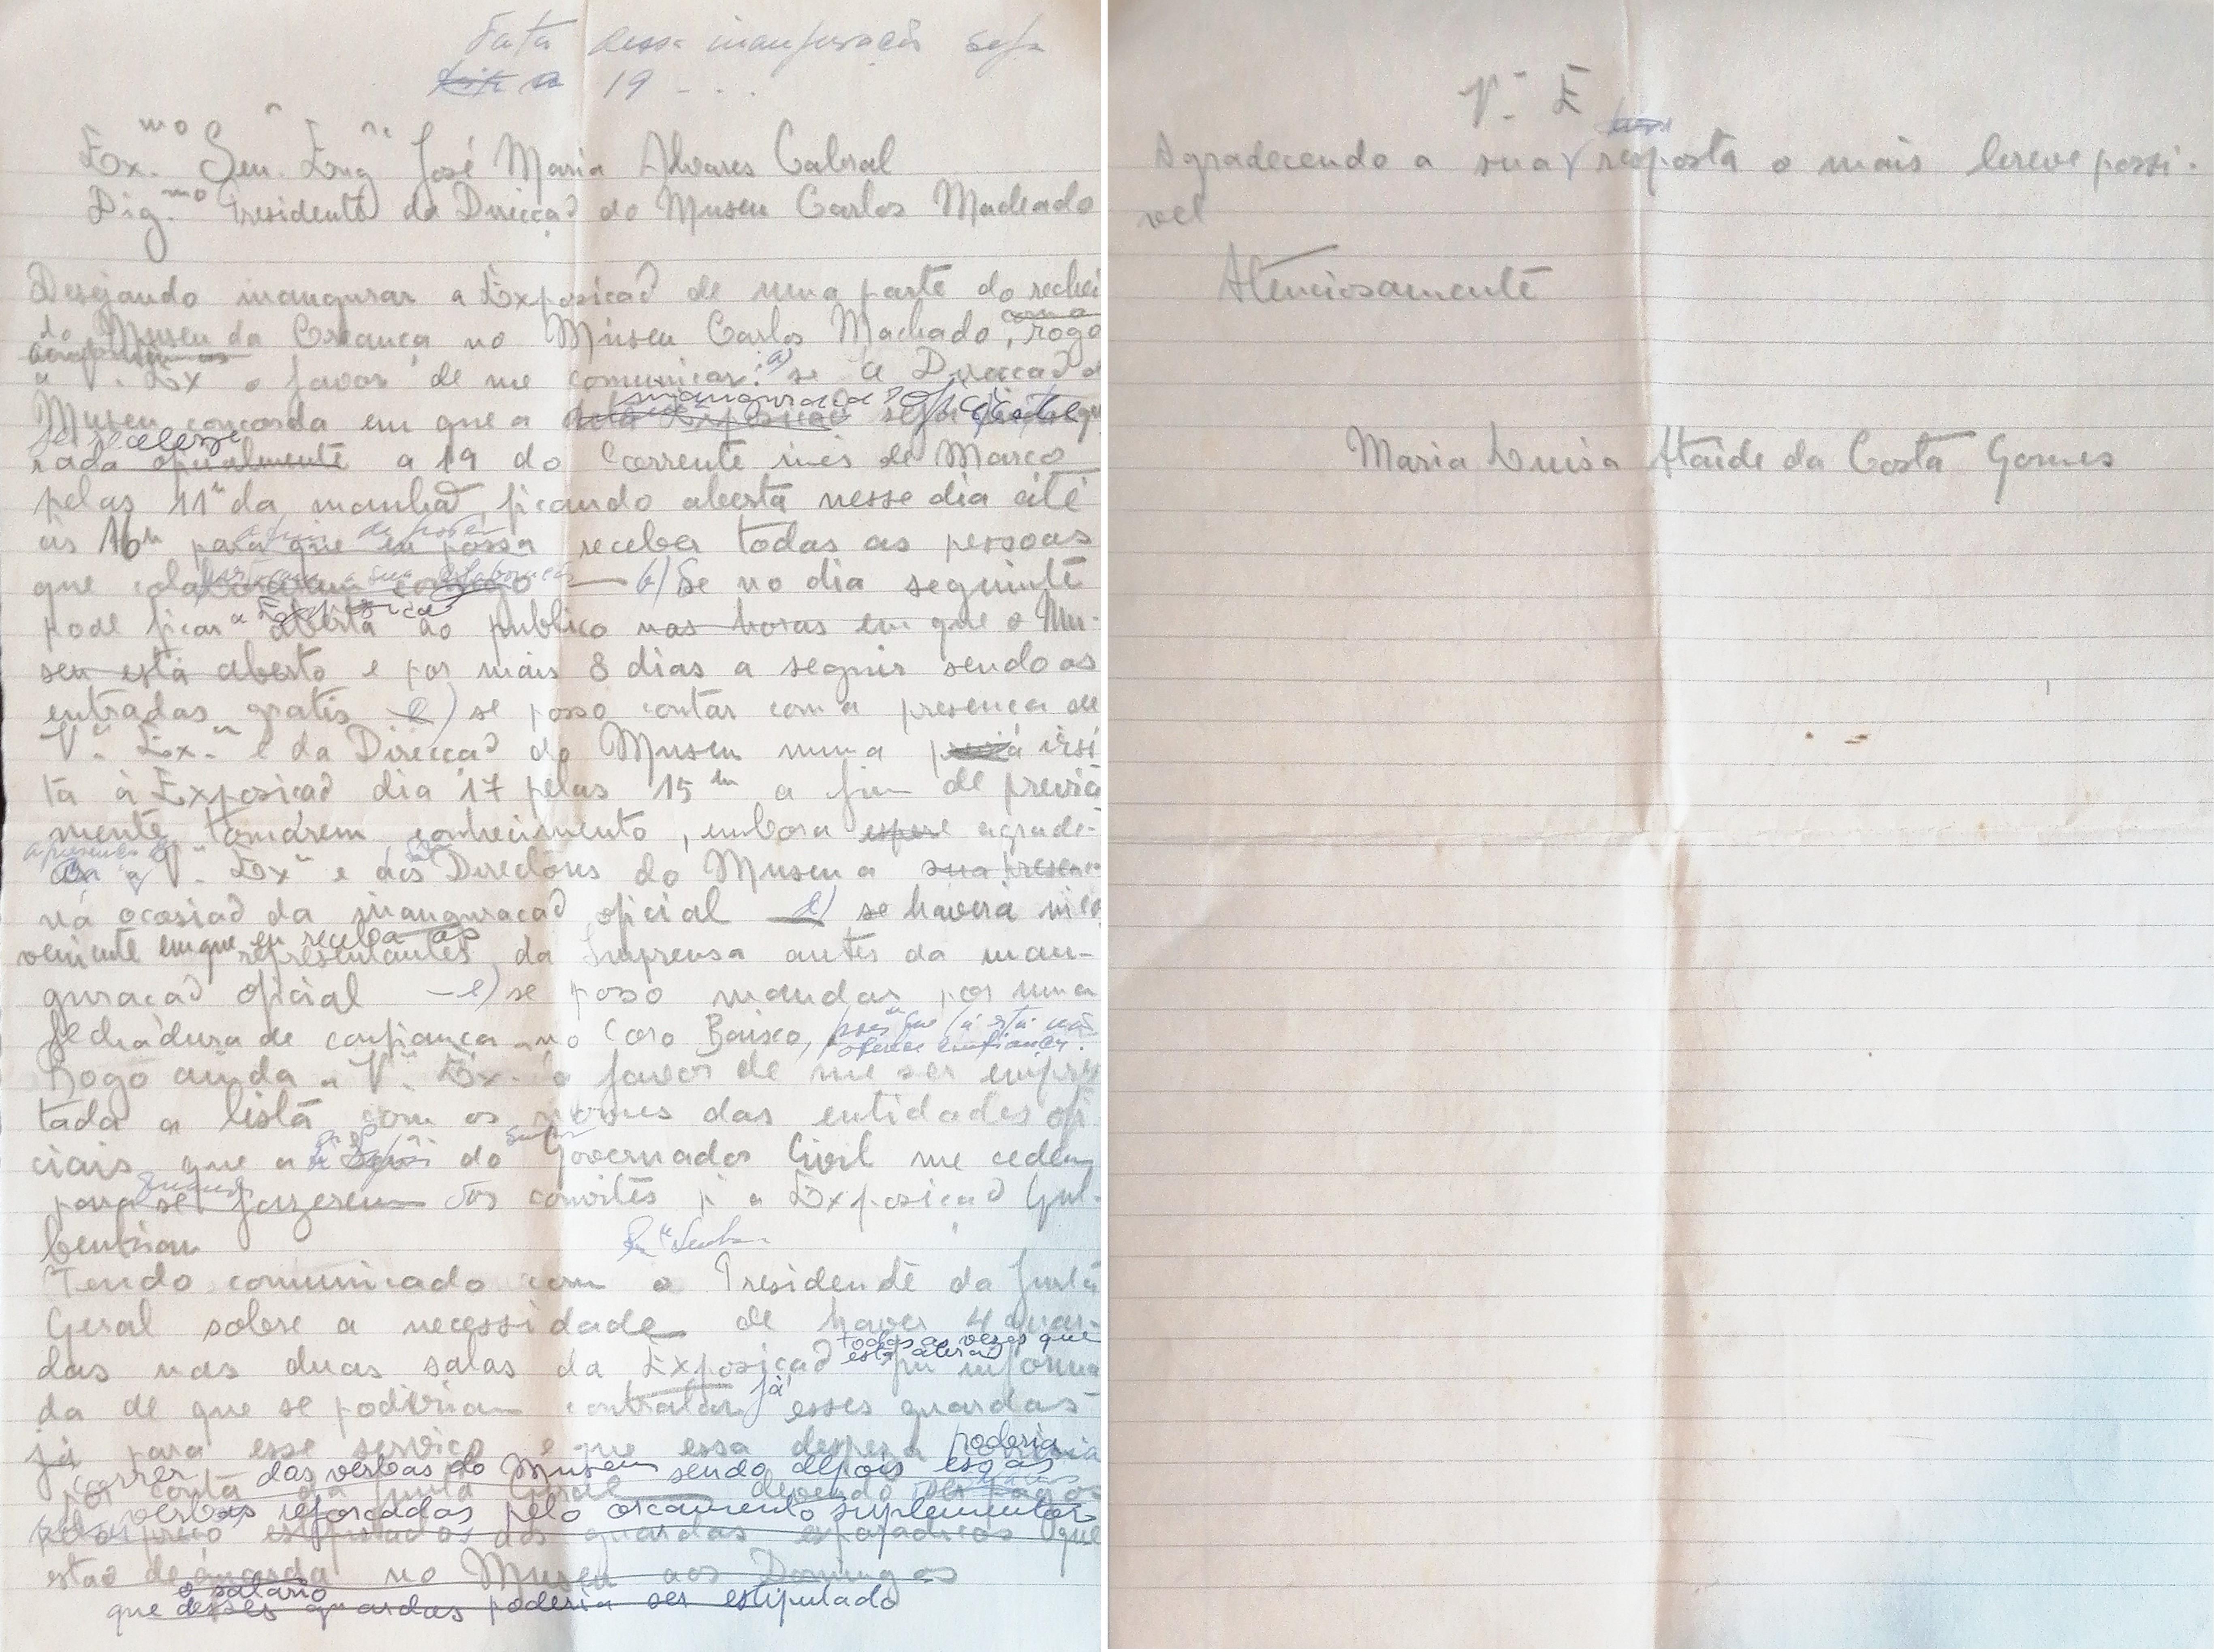 data dessa inauguração seja
19 - . .
Ex.mo Senr. Engre José Maria Alvares Cabral
Dig.mo Presidente da Direcção do Museu Carlos Machado
Desejando inaugurar a Exposição de uma parte do rechei
do Museu da Creança no Museu Carlos Machado, rogo
a V.a Ex.a o favor de me comunicar: a) se a Direcção do
inauguração
Museu concorda em que a seja
se realizasse
rada oficialmente a 19 do Corrente mês de Março
pelas 11h da manhã, ficando aberta nesse dia até
ás 16h para que eu possa receber todas as pessoas
que b) Se no dia seguinte
a Exposição
pode ficar aberta ao publico nas horas em que o Mu-
seu está aberto e por mais 8 dias a seguir sendo as
entradas gratis c) se posso contar com a presença de
V.a Ex.a e da Direcção do Museu numa visi
ta à Exposição dia 17 pelas 15h a fim de previa
mente tomárem conhecimento, embora espere agrade-
a presença de
V.a Ex.a e dos Directores do Museu a sua presença
ná ocasião da inauguração oficial d) se haverá inco
em que eu receba os
veniente representantes da Imprensa antes da inau-
guração oficial — e) se poso mandar pôr uma
fechádura de confiança no Coro Baixo, pois que lá está não
oferece confiança.
Rogo ainda a V.a Ex.a o favor de me ser empres
tada a listá com os nomes das entidades ofi
ciais que a do Governador Civil me cedeu
para se fazerem os convites p.a a Exposição Gul-
benkian
Tendo comunicado com o Presidente da Junta
Geral sobre a necessidade de haver 4 guar-
todas as vezes que
está aberta
das nas duas salas da Exposição fui informa
já
da de que se poderiam contratar esses guardas
já para esse serviço e que essa despesa
poderia
correr das verbas do Museu sendo depois essas
por conta da Junta Geral devendo ser pagos
verbas reforçadas pelo orcamento suplementar
preço estipulado dos guardas esporadicos que
estão de guarda no Museu aos Domingos
o salario
que desses guardas poderia ser estipulado
V.a E
Agradecendo a sua resposta o mais breve possi-
vel
Atenciosamente
Maria Luisa Ataíde da Costa Gomes